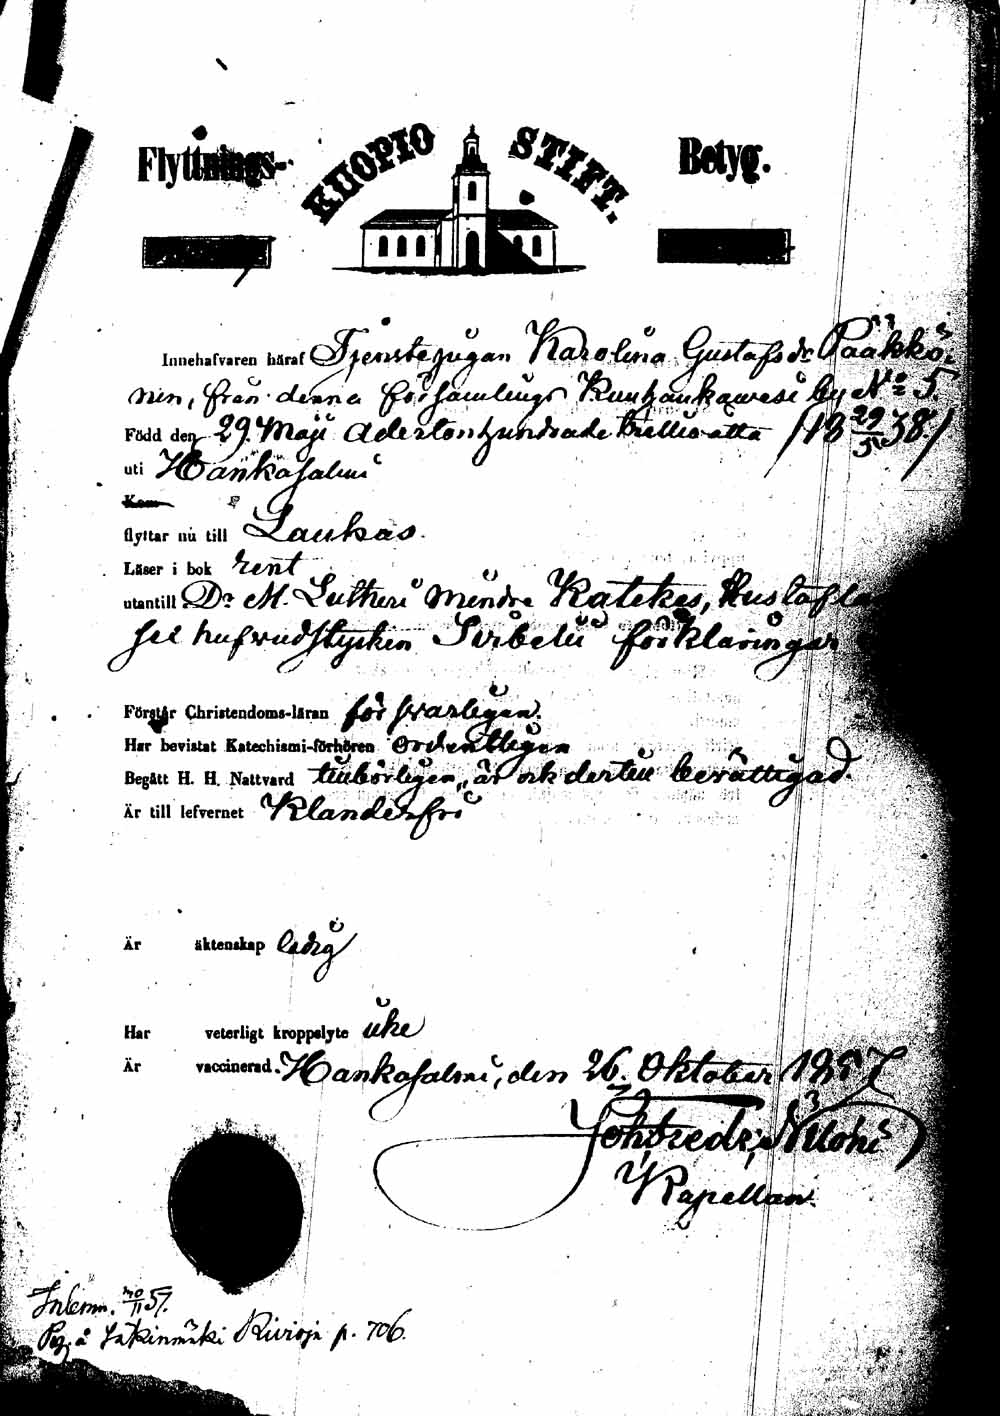 Flyttnings- KUOPIO STIFT. Betyg.
Innehafvaren häraf Tjenstepigan Karolina Gustafsdr Pääkkö-
nen, från denna församlings Kuuhankawesi by No 5.
Född den 29. Maji Adertonhundrade trettio åtta /18 29/5 38./
uti Hankasalmi
Kom
flyttar nu till Laukas.
Läser i bok rent
utantill Dr M. Lutheri Mindre Katekes, Hustaflan
hufvudstycken Svebelii förklaringar
Förstår Christendoms-läran försvarligen.
Har bevistat Katechismi-förhören ordentligen
Begått H. H. Nattvard tillbörligen, är ock dertill berättigad.
Är till lefvernet Klanderfri
Är äktenskap ledig
Har veterligt kroppslyte icke
Är vaccinerad. Hankasalmi, den 26. Oktober 1857
Joh. Fredr.
V. Kapellan.
Inlemn. 57.
p. 706.